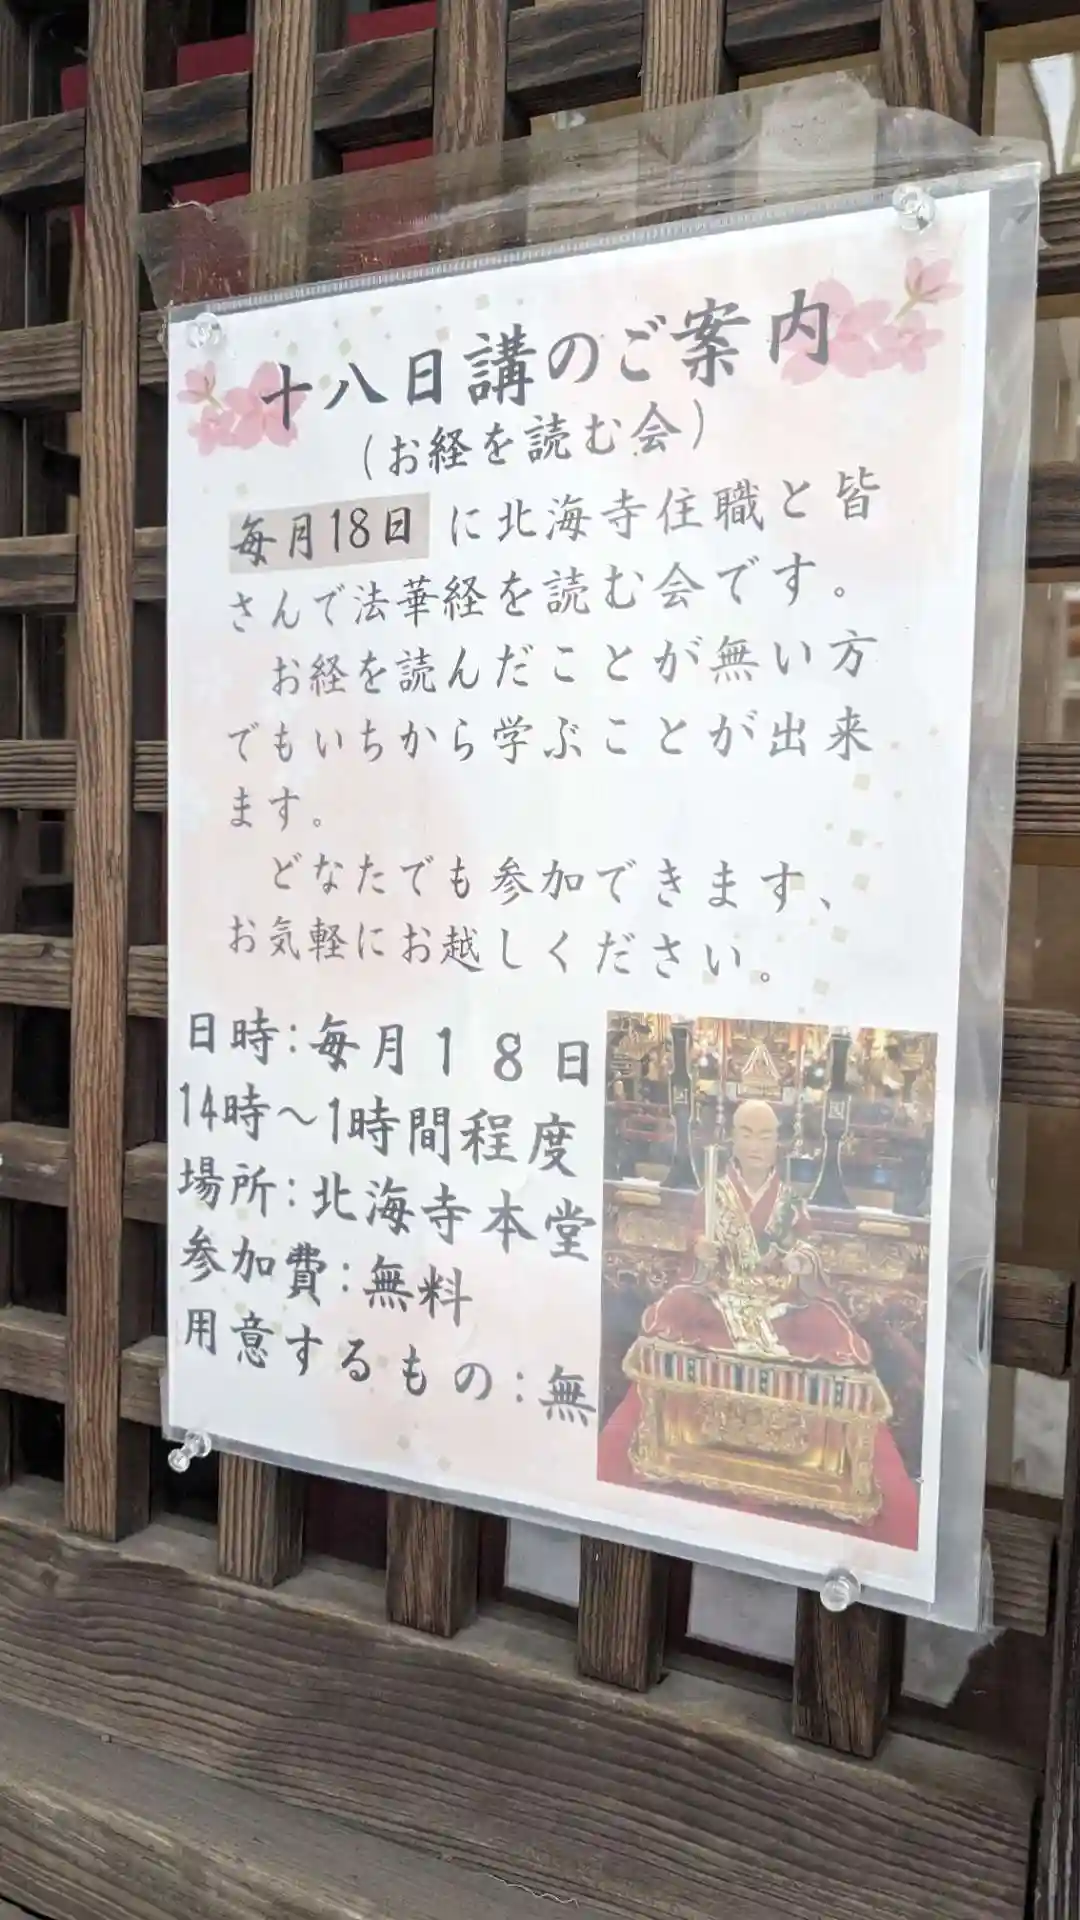 十八日講のご案内
(お経を読む会)
毎月18日 に北海寺住職と皆
さんで法華経を読む会です。
お経を読んだことが無い方
でもいちから学ぶことが出来
ます。
どなたでも参加できます、
お気軽にお越しください。
日時:毎月18日
14時～1時間程度
場所:北海寺本堂
参加費:無料
用意するもの:無